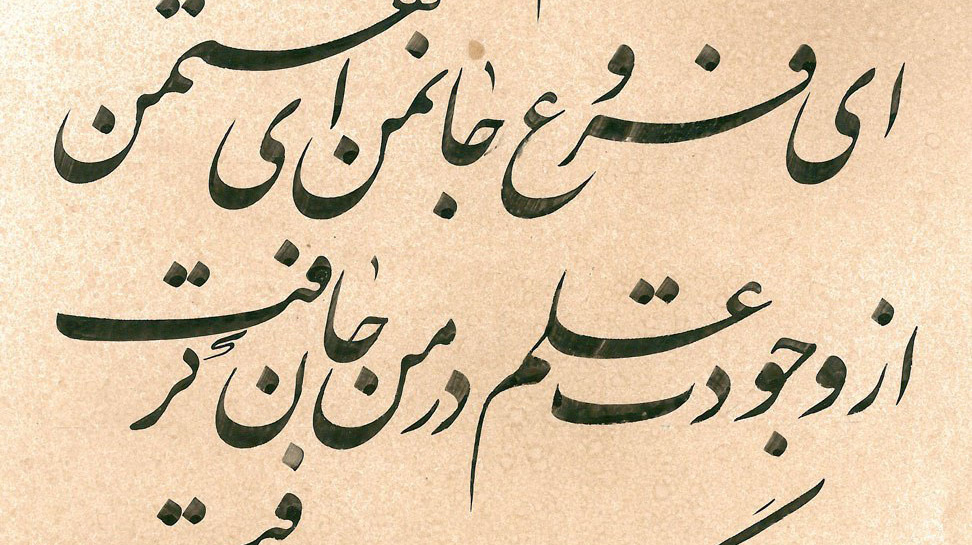 ای فروغ جان من ای
از وجودت علم در من جان گرفت